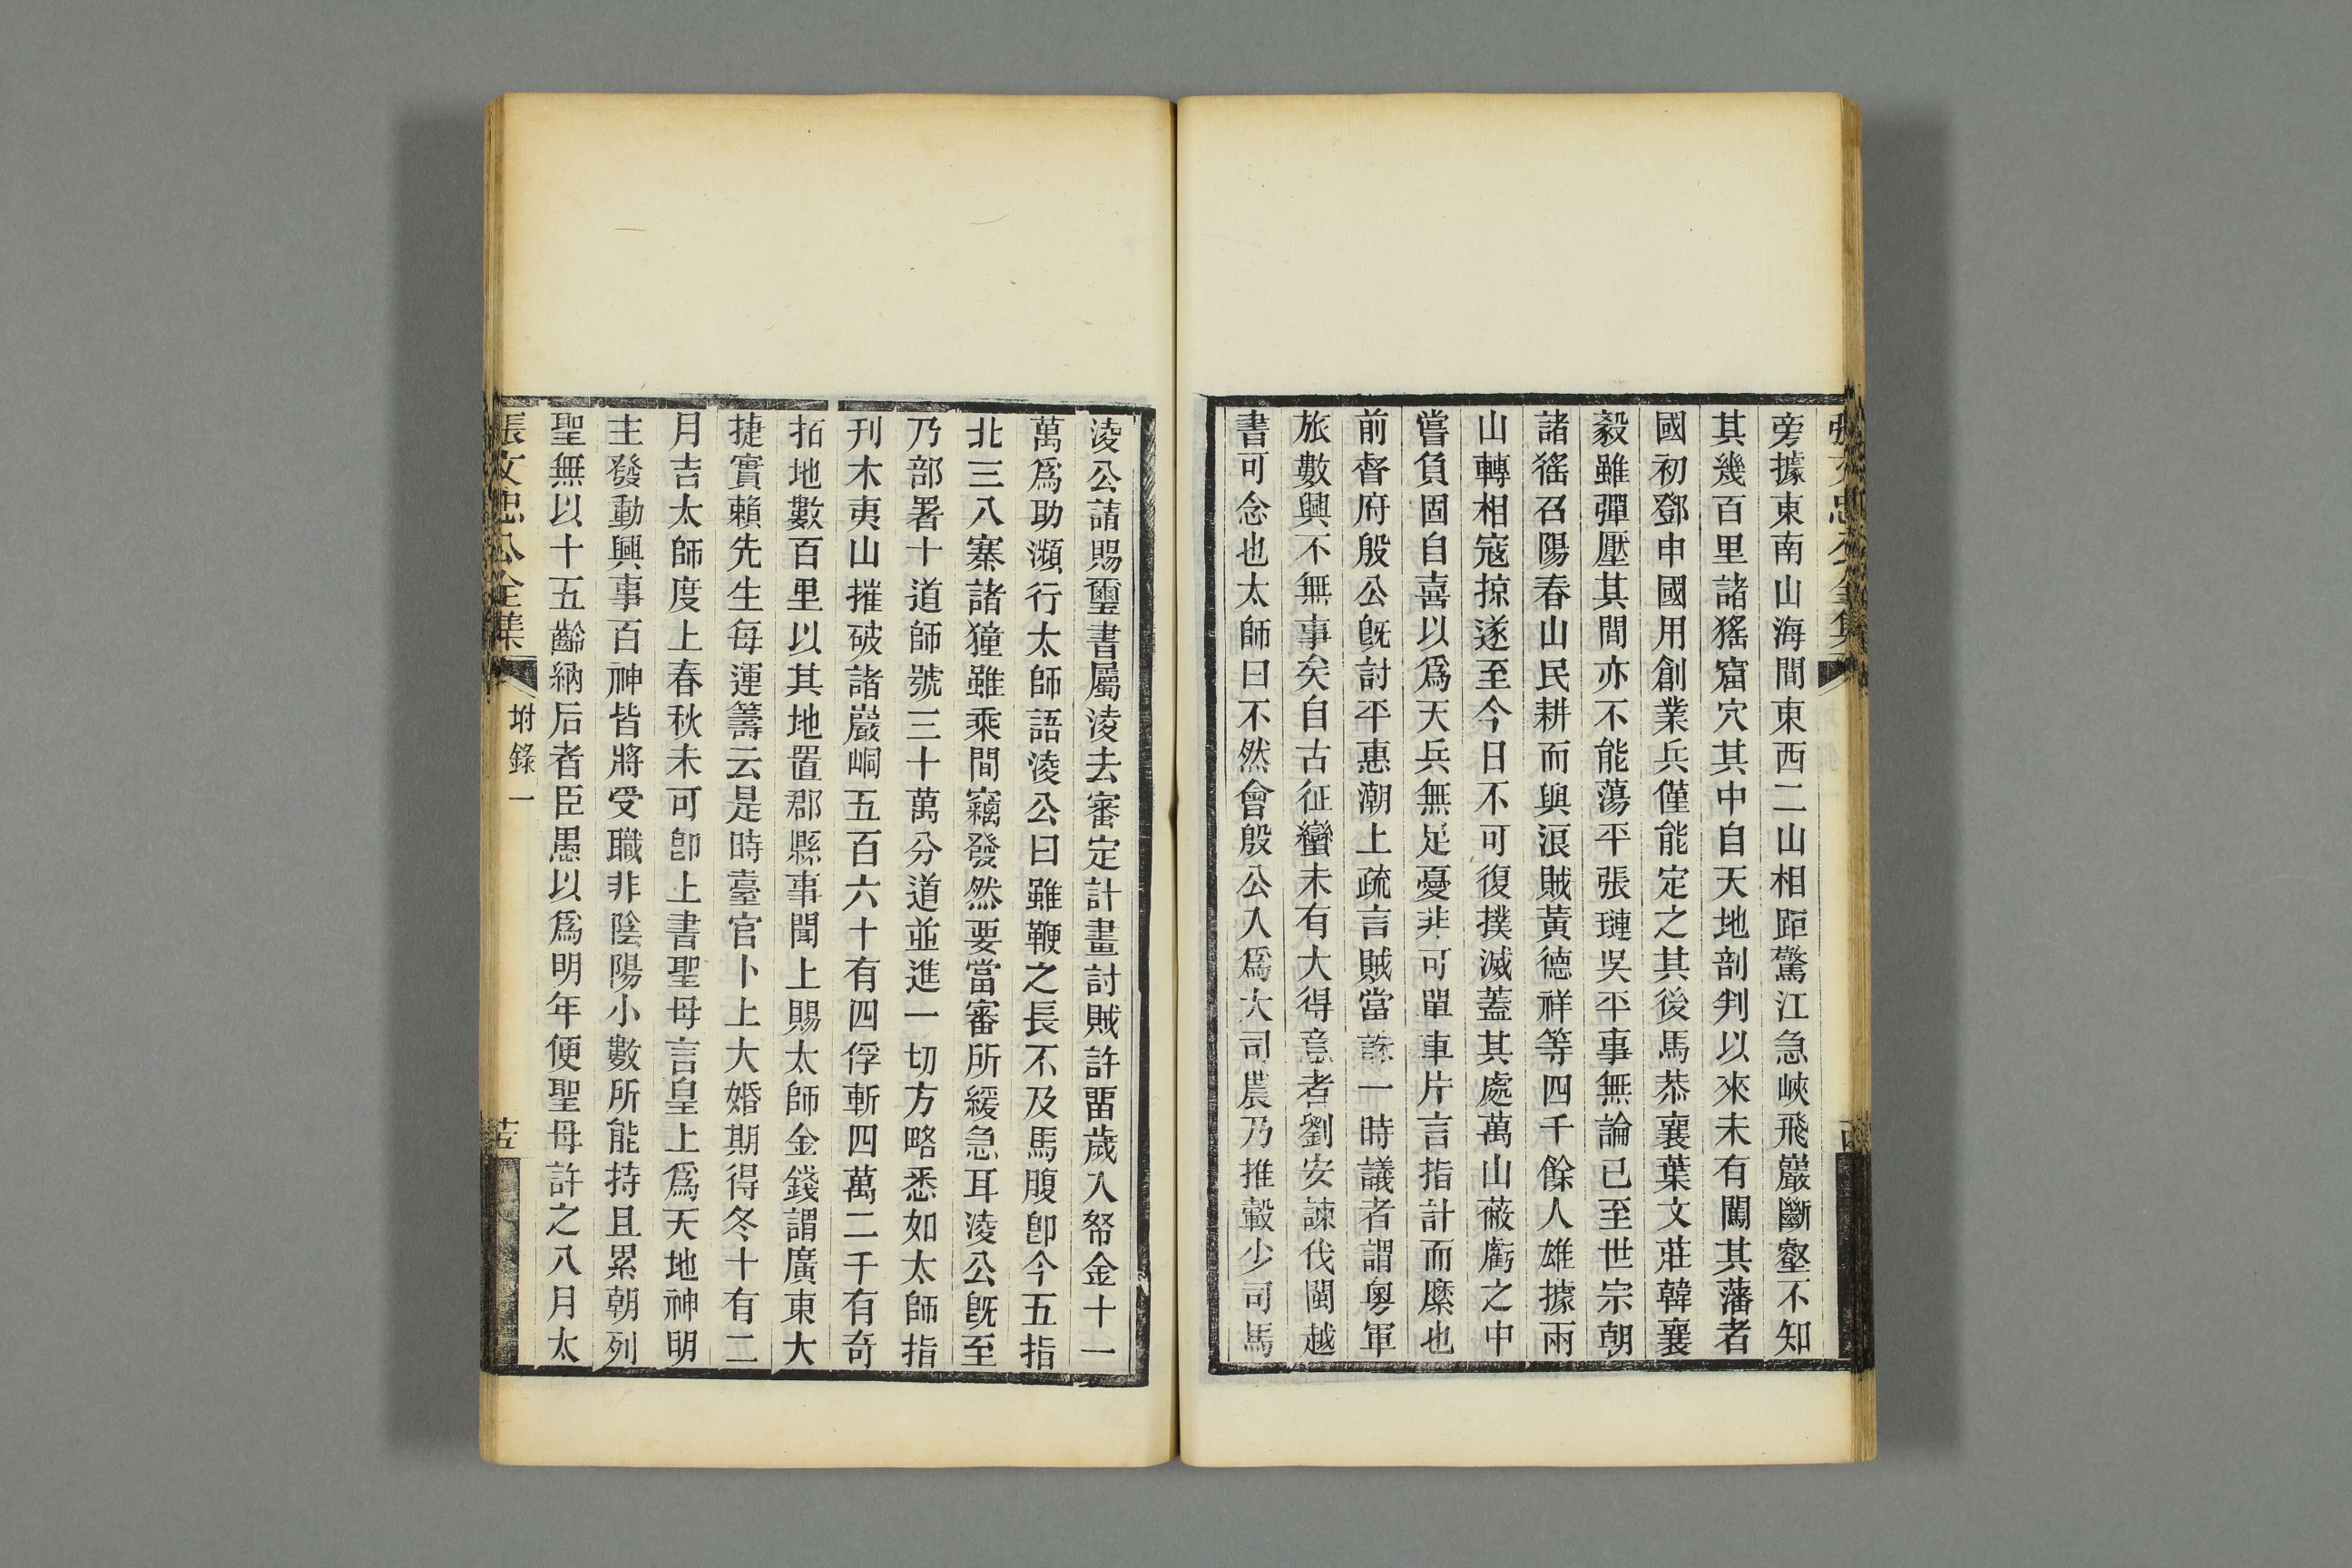 旁據東南山海間東西二山相距驚江急峽飛巖斷壑不知
其幾百里諸猺窟穴其中自天地剖判以來未有闖其藩者
國初鄧申國用創業兵僅能定之其後馬恭襄葉文莊韓襄
毅雖彈壓其間亦不能蕩平張璉吳平事無論已至世宗朝
諸猺召陽春山民耕而與浪賊黃德祥等四千餘人雄據兩
山轉相寇掠遂至今日不可復撲滅蓋其處萬山蔽虧之中
嘗負固自喜以爲天兵無足憂非可單車片言指計而縻也
前督府殷公旣討平惠潮上疏言賊當誅一時議者謂粵軍
旅數興不無事矣自古征蠻未有大得意者劉安諫伐閩越
書可念也太師曰不然會殷公入爲大司農乃推轂少司馬
淩公請賜璽書屬淩去審定計畫討賊許畱歲入帑金十一
萬爲助瀕行太師語淩公曰雖鞭之長不及馬腹卽今五指
北三八寨諸獞雖乘間竊發然要當審所緩急耳淩公旣至
乃部署十道師號三十萬分道並進一切方略悉如太師指
刋木夷山摧破諸巖峒五百六十有四俘斬四萬二千有奇
拓地數百里以其地置郡縣事聞上賜太師金錢謂廣東大
捷實賴先生每運籌云是時臺官卜上大婚期得冬十有二
月吉太師度上春秋未可卽上書聖母言皇上爲天地神明
主發動興事百神皆將受職非陰陽小數所能持且累朝列
聖無以十五齡納后者臣愚以爲明年便聖母許之八月太
張文忠公全集
附錄一